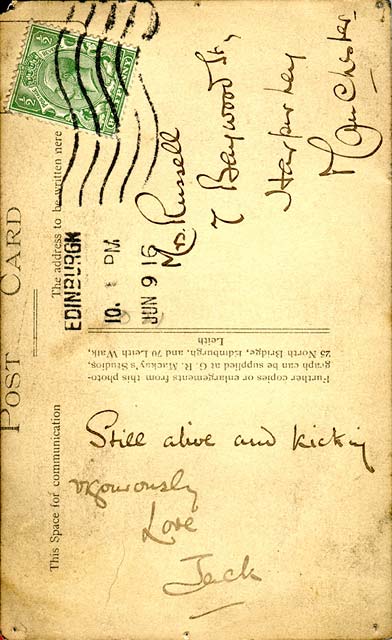 POST CARD
This Space for communication
The address to be written here
EDINBURGH
10. PM
JUN 9 16
Mrs. Russell
7 Baywood St,
Harpurhey
Manchester.
Further copies or enlargements from this photo-
graph can be supplied at G. R. Mackay's Studios,
25 North Bridge, Edinburgh, and 70 Leith Walk,
Leith
Still alive and kicking
vigourously
Love
Jack